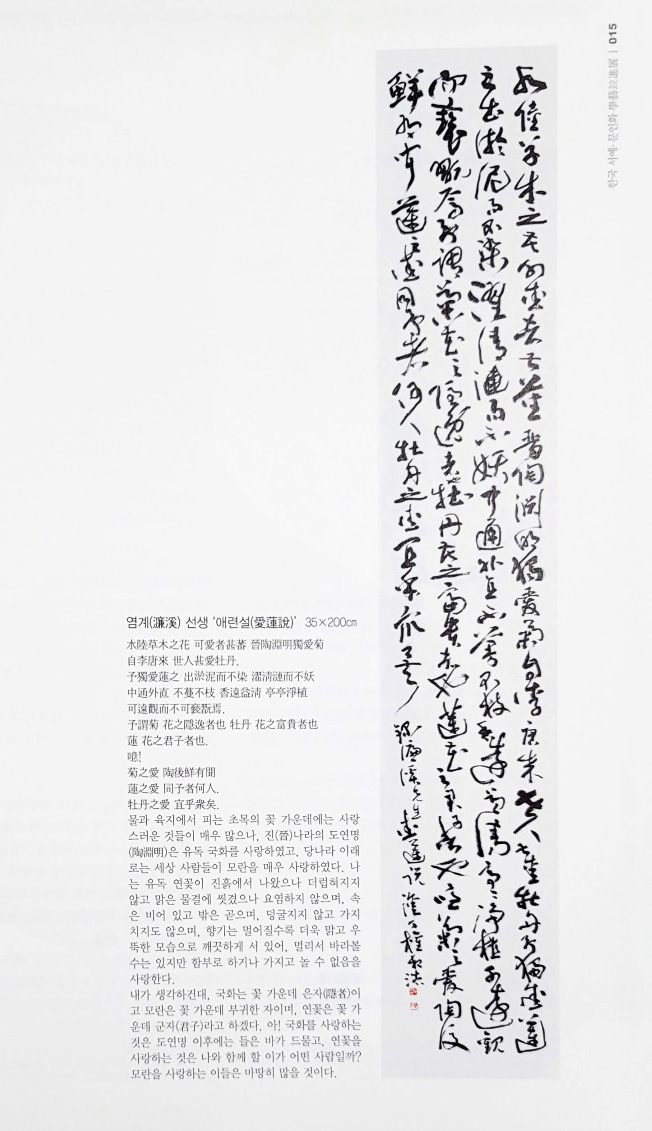 한국 서예·문인화·學藝竝進展 | 015
염계(濂溪) 선생 ‘애련설(愛蓮說)’ 35×200㎝
水陸草木之花 可愛者甚蕃 晉陶淵明獨愛菊
自李唐來 世人甚愛牡丹.
予獨愛蓮之 出淤泥而不染 濯淸漣而不妖
中通外直 不蔓不枝 香遠益淸 亭亭淨植
可遠觀而不可褻翫焉.
予謂菊 花之隱逸者也 牡丹 花之富貴者也
蓮 花之君子者也.
噫!
菊之愛 陶後鮮有聞
蓮之愛 同予者何人.
牡丹之愛 宜乎衆矣.
물과 육지에서 피는 초목의 꽃 가운데에는 사랑
스러운 것들이 매우 많으나, 진(晉)나라의 도연명
(陶淵明)은 유독 국화를 사랑하였고, 당나라 이래
로는 세상 사람들이 모란을 매우 사랑하였다. 나
는 유독 연꽃이 진흙에서 나왔으나 더럽혀지지
않고 맑은 물결에 씻겼으나 요염하지 않으며, 속
은 비어 있고 밖은 곧으며, 덩굴지지 않고 가지
치지도 않으며, 향기는 멀어질수록 더욱 맑고 우
뚝한 모습으로 깨끗하게 서 있어, 멀리서 바라볼
수는 있지만 함부로 하거나 가지고 놀 수 없음을
사랑한다.
내가 생각하건대, 국화는 꽃 가운데 은자(隱者)이
고 모란은 꽃 가운데 부귀한 자이며, 연꽃은 꽃 가
운데 군자(君子)라고 하겠다. 아! 국화를 사랑하는
것은 도연명 이후에는 들은 바가 드물고, 연꽃을
사랑하는 것은 나와 함께 할 이가 어떤 사람일까?
모란을 사랑하는 이들은 마땅히 많을 것이다.
水陸草木之花可愛者甚蕃晉陶淵明獨愛菊自李唐來世人甚愛牡丹予獨愛蓮
之出淤泥而不染濯清漣而不妖中通外直不蔓不枝香遠益清亭亭淨植可遠觀
而不可褻翫焉予謂菊花之隱逸者也牡丹花之富貴者也蓮花之君子者也噫菊之愛陶後
鮮有聞蓮之愛同予者何人牡丹之愛宜乎衆矣 錄濂溪先生愛蓮說